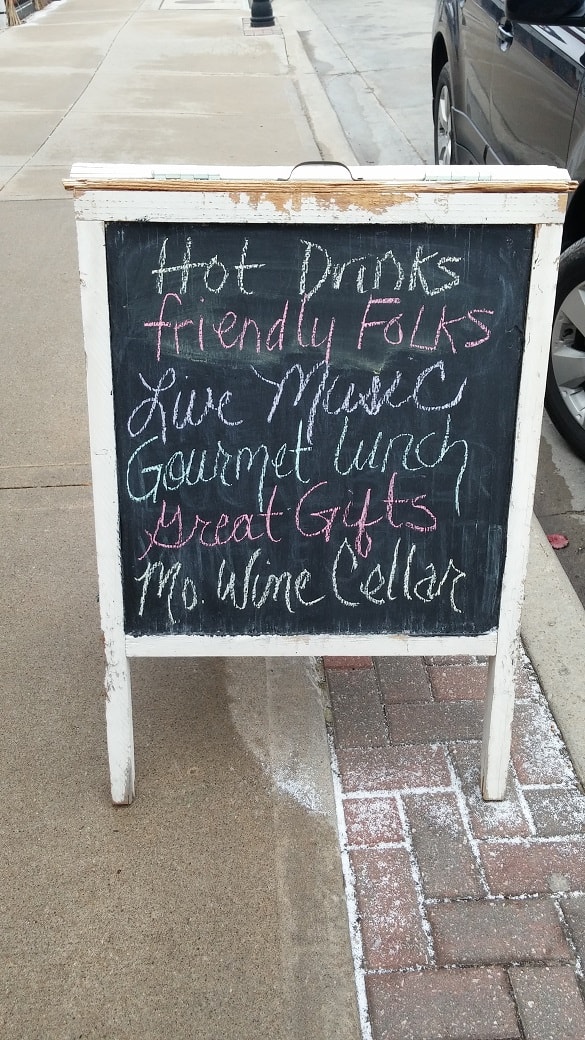 Hot Drinks
friendly Folks
Live Music
Gourmet lunch
Great Gifts
Mo. Wine Cellar